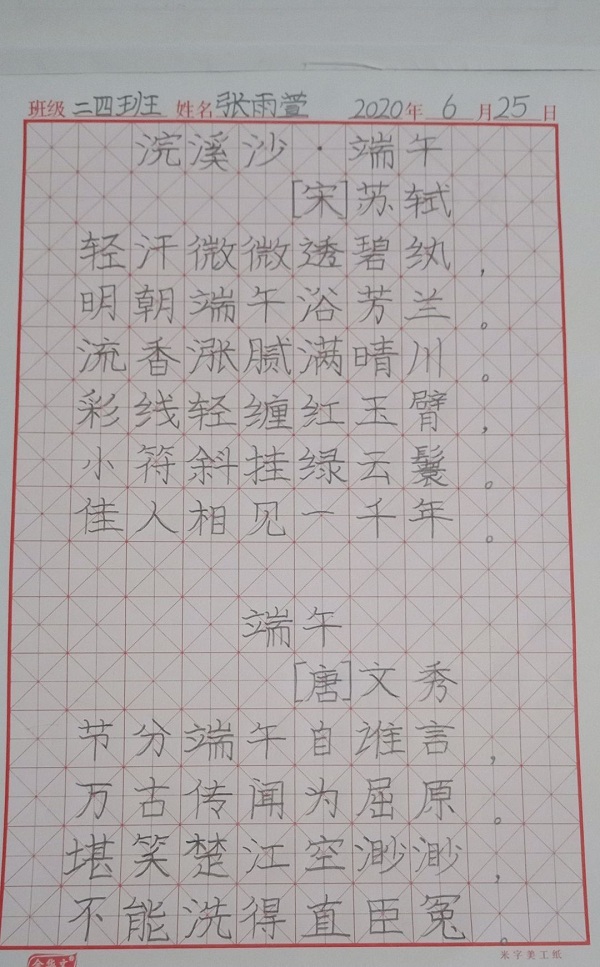 班级 二四班 姓名 张雨萱 2020年 6 月 25 日
浣溪沙·端午
[宋]苏轼
轻汗微微透碧纨，
明朝端午浴芳兰。
流香涨腻满晴川。
彩线轻缠红玉臂，
小符斜挂绿云鬟。
佳人相见一千年。
端午
[唐]文秀
节分端午自谁言，
万古传闻为屈原。
堪笑楚江空渺渺，
不能洗得直臣冤。
米字美工纸